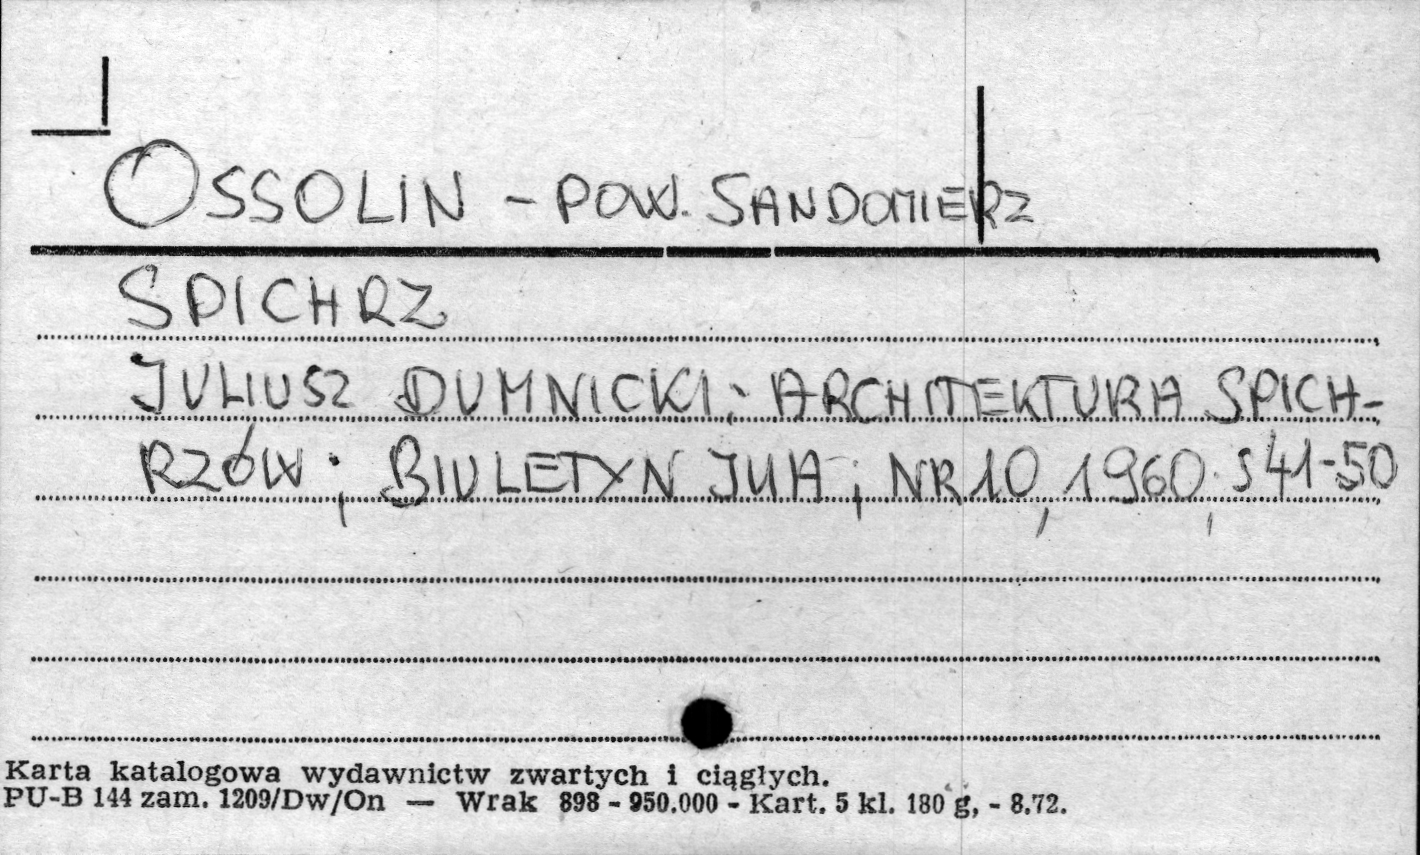 OSSOLIN - POW. SANDOMIERZ
SPICHRZ
JULIUSZ DUMNICKI; ARCHITEKTURA SPICH-
RZÓW; BIULETYN IUA; NR 10, 1960; S 41-50
Karta katalogowa wydawnictw zwartych i ciągłych.
PU-B 144 zam. 1209/Dw/On — Wrak 898 - 950.000 - Kart. 5 kl. 180 g, - 8.72.